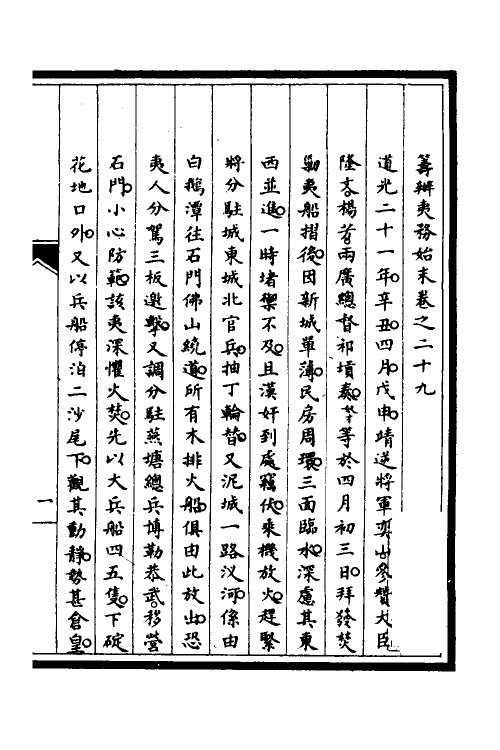 籌辦夷務始末卷之二十九
道光二十一年。辛丑。四月。戊申。靖逆將軍奕山參贊大臣
隆文楊芳兩廣總督祁𡎴奏。竊等於四月初三日。拜發焚
勦夷船摺後。因新城單薄。民房周環。三面臨水。深慮其東
西並進。一時堵禦不及。且漢奸到處竊伏。乘機放火。趕緊
將分駐城東城北官兵。抽丁輪替。又泥城一路汊河。係由
白鵞潭往石門佛山繞道。所有木排火船。俱由此放出。恐
夷人分駕三板邀擊。又調分駐燕塘總兵博勒恭武。移營
石門。小心防範。該夷深懼火焚。先以大兵船四五隻。下碇
花地口外。又以兵船停泊二沙尾下。觀其動靜。勢甚倉皇。
一